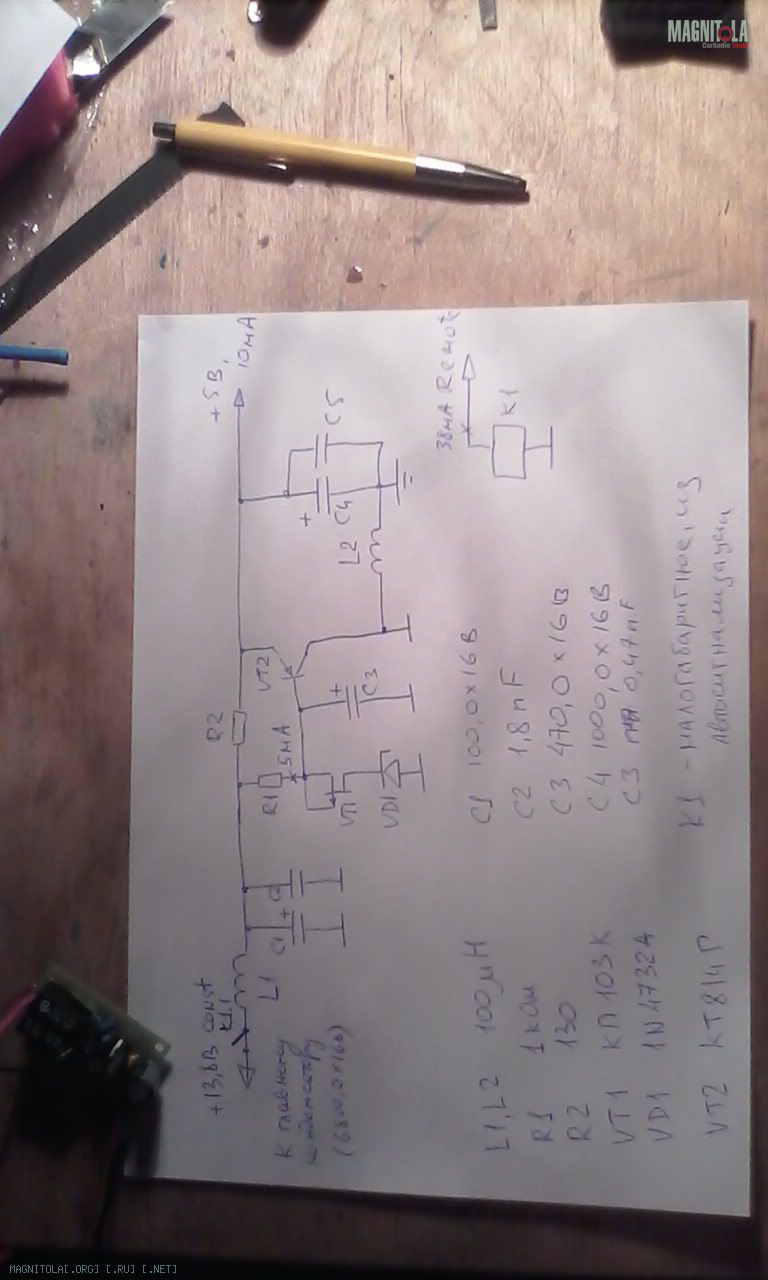 MAGNITOLA
CarAudio Team
+13,8В const
K1.1
L1
К главному
конденсатору
(6800,0×16В)
C1
+
C2
R1
5мА
VT1
VD1
R2
VT2
+
C3
L2
+
C4
C5
+5В,
10мА
38мА Remote
K1
L1, L2 100 μH
R1 1 кОм
R2 130
VT1 КП 103 К
VD1 1N4732A
VT2 КТ814Г
C1 100,0 × 16В
C2 1,8 nF
C3 470,0 × 16В
C4 1000,0 × 16В
C3 0,47nF
K1 - малогабаритное, из
Автосигнализации
MAGNITOLA[.ORG] [.RU] [.NET]